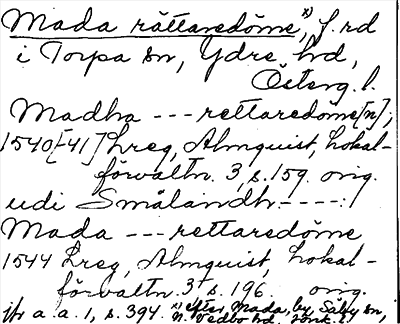 Mada rättaredöme, x) f. rd
i Torpa sn, Ydre hd,
Österg. l.
Madha --- rettaredöme[n],
1540[-41] Lreg, Almquist, Lokal-
förvaltn. 3, s. 159. orig.
udi Smålandh ----:
Mada --- rettaredöme
1544 Lreg, Almquist, Lokal-
förvaltn. 3 s. 196. orig.
jfr a. a. 1, s. 394. x) efter Mada, by Säby sn,
N. Vedbo hd,